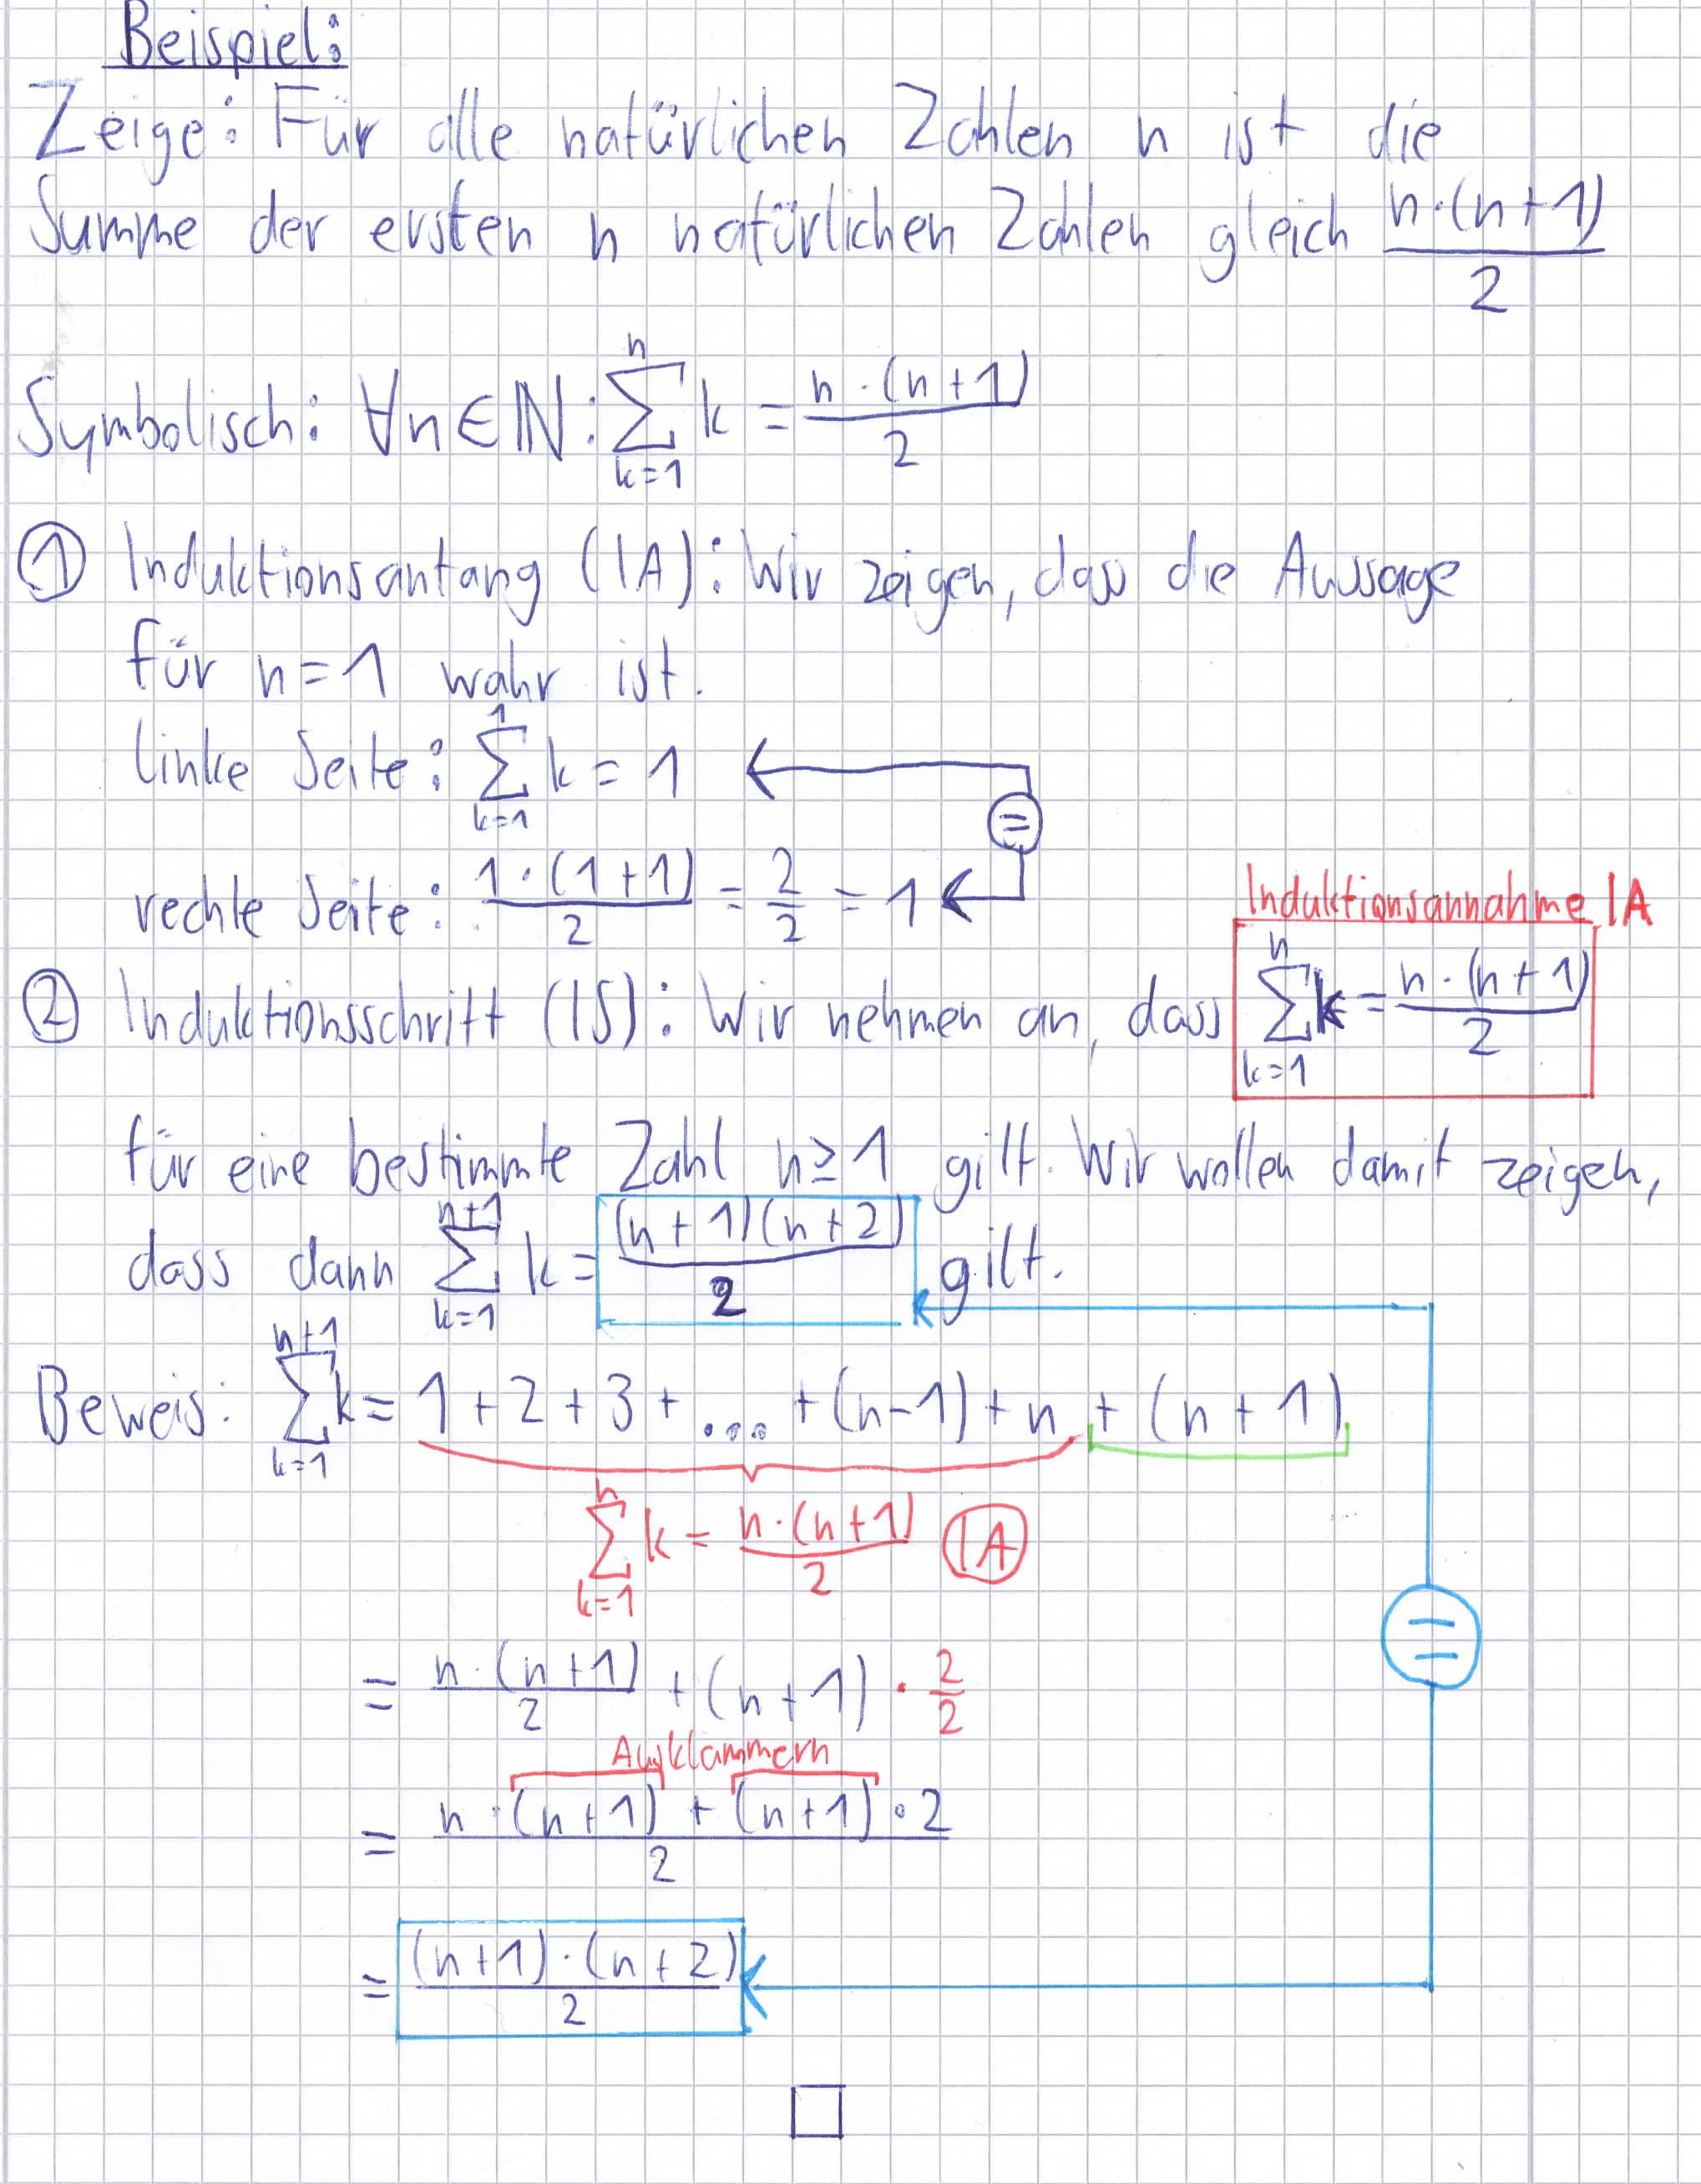 Beispiel:
Zeige: Für alle natürlichen Zahlen n ist die
Summe der ersten n natürlichen Zahlen gleich n·(n+1)/2
Symbolisch: ∀n∈ℕ: ∑_{k=1}^{n} k = n·(n+1)/2
① Induktionsanfang (IA): Wir zeigen, dass die Aussage
für n=1 wahr ist.
linke Seite: ∑_{k=1}^{1} k = 1
=
rechte Seite: 1·(1+1)/2 = 2/2 = 1
Induktionsannahme IA
② Induktionsschritt (IS): Wir nehmen an, dass ∑_{k=1}^{n} k = n·(n+1)/2
für eine bestimmte Zahl n≥1 gilt. Wir wollen damit zeigen,
dass dann ∑_{k=1}^{n+1} k = (n+1)(n+2)/2 gilt.
Beweis: ∑_{k=1}^{n+1} k = 1+2+3+...+(n-1)+n+(n+1)
∑_{k=1}^{n} k = n·(n+1)/2 IA
= n·(n+1)/2 + (n+1)·2/2
=
Ausklammern
= (n·(n+1)+(n+1)·2)/2
= (n+1)·(n+2)/2
□